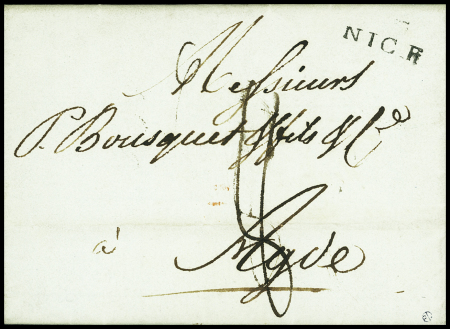 NICE
Messieurs
P. Bousquet & fils & Ce
à
Agde